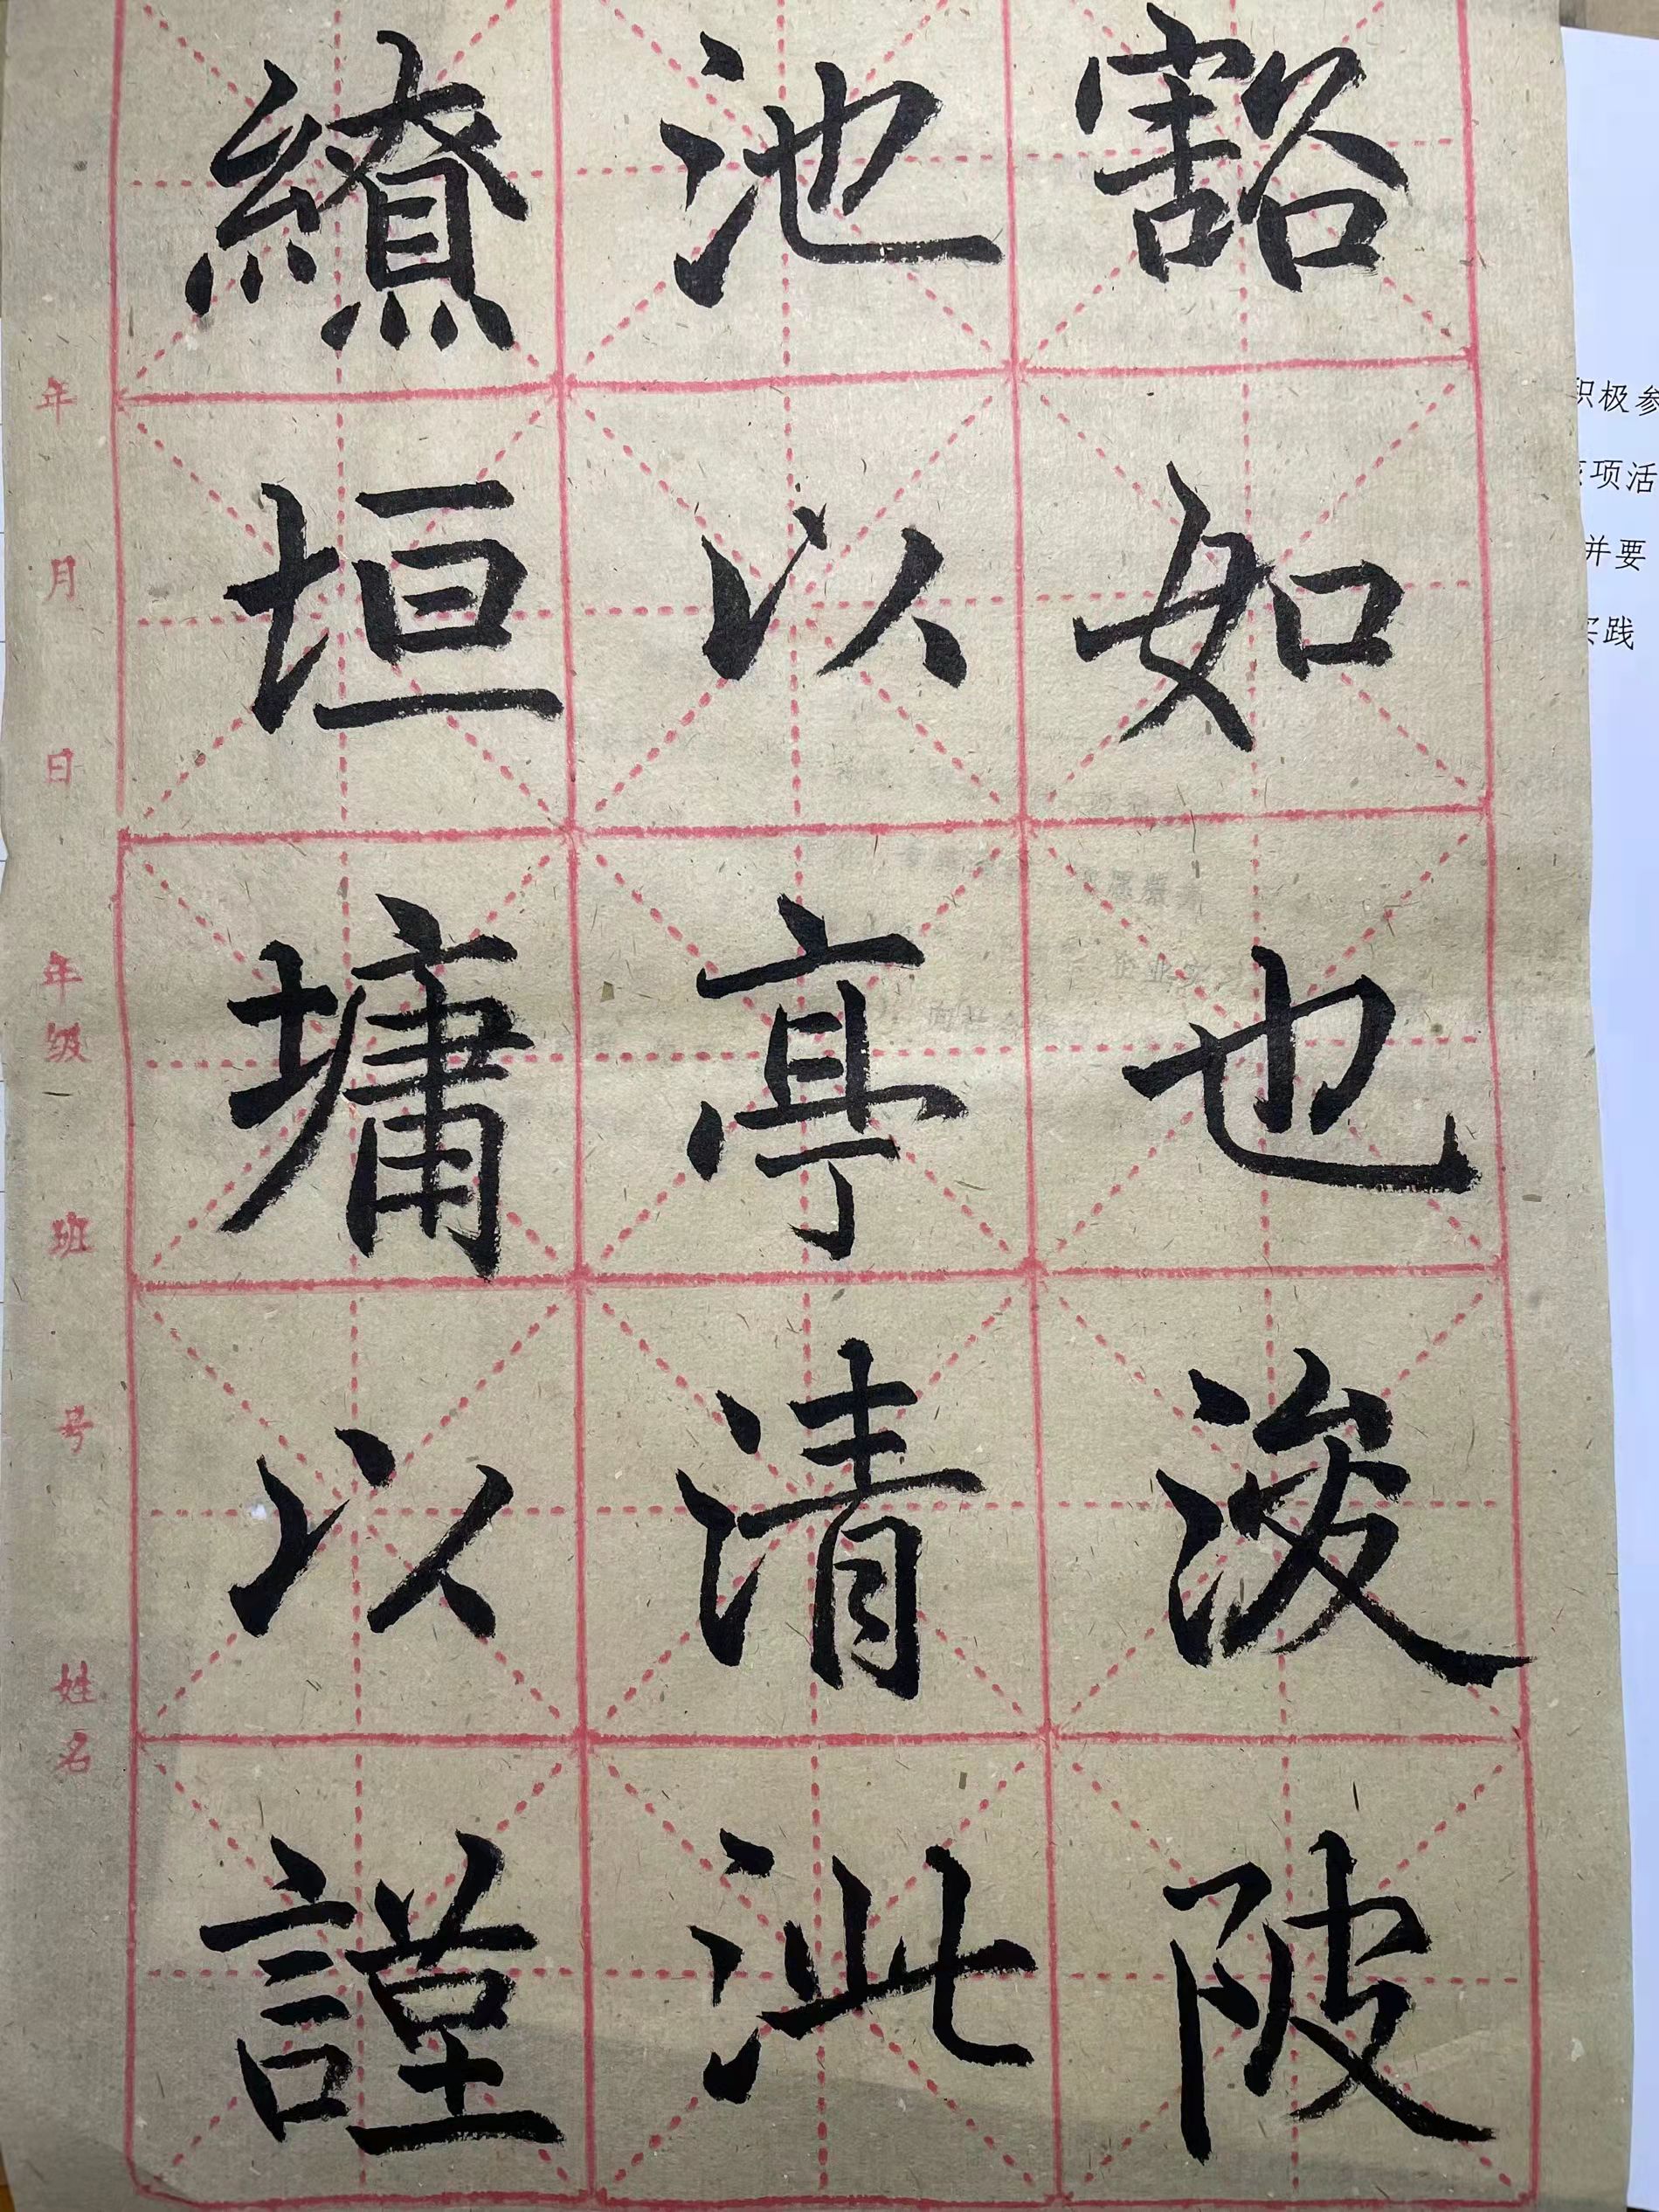 豁如也浚陂
池以亭清泚
繚垣墉以謹
年 月 日 年级 班 号 姓名
积极参
项活
并要
实践